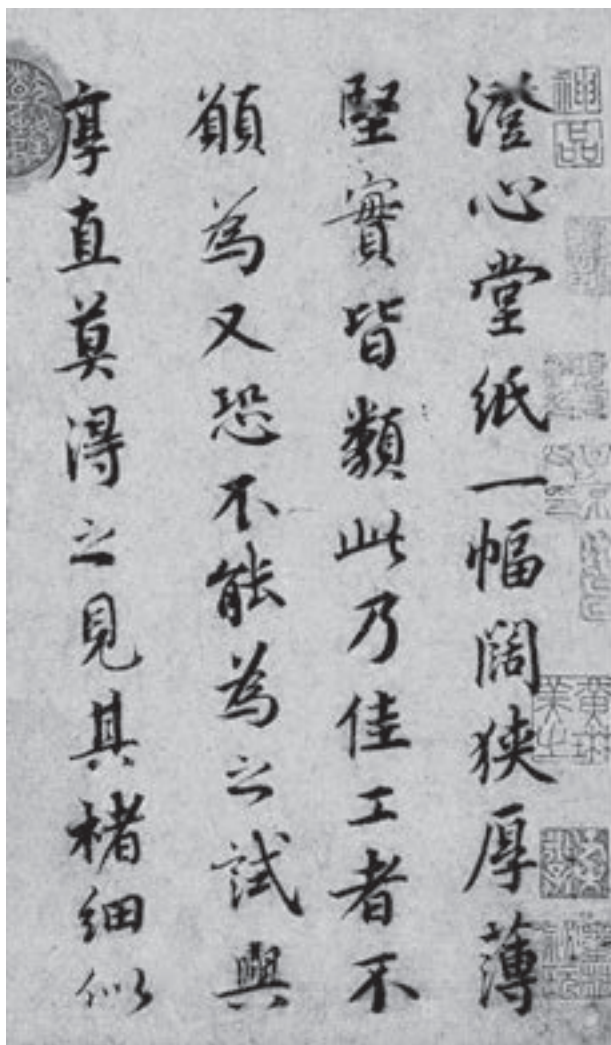 神品
黃琳美之
澄心堂紙一幅闊狹厚薄
堅實皆類此乃佳工者不
願為又恐不能為之試與
厚直莫得之見其楮細似